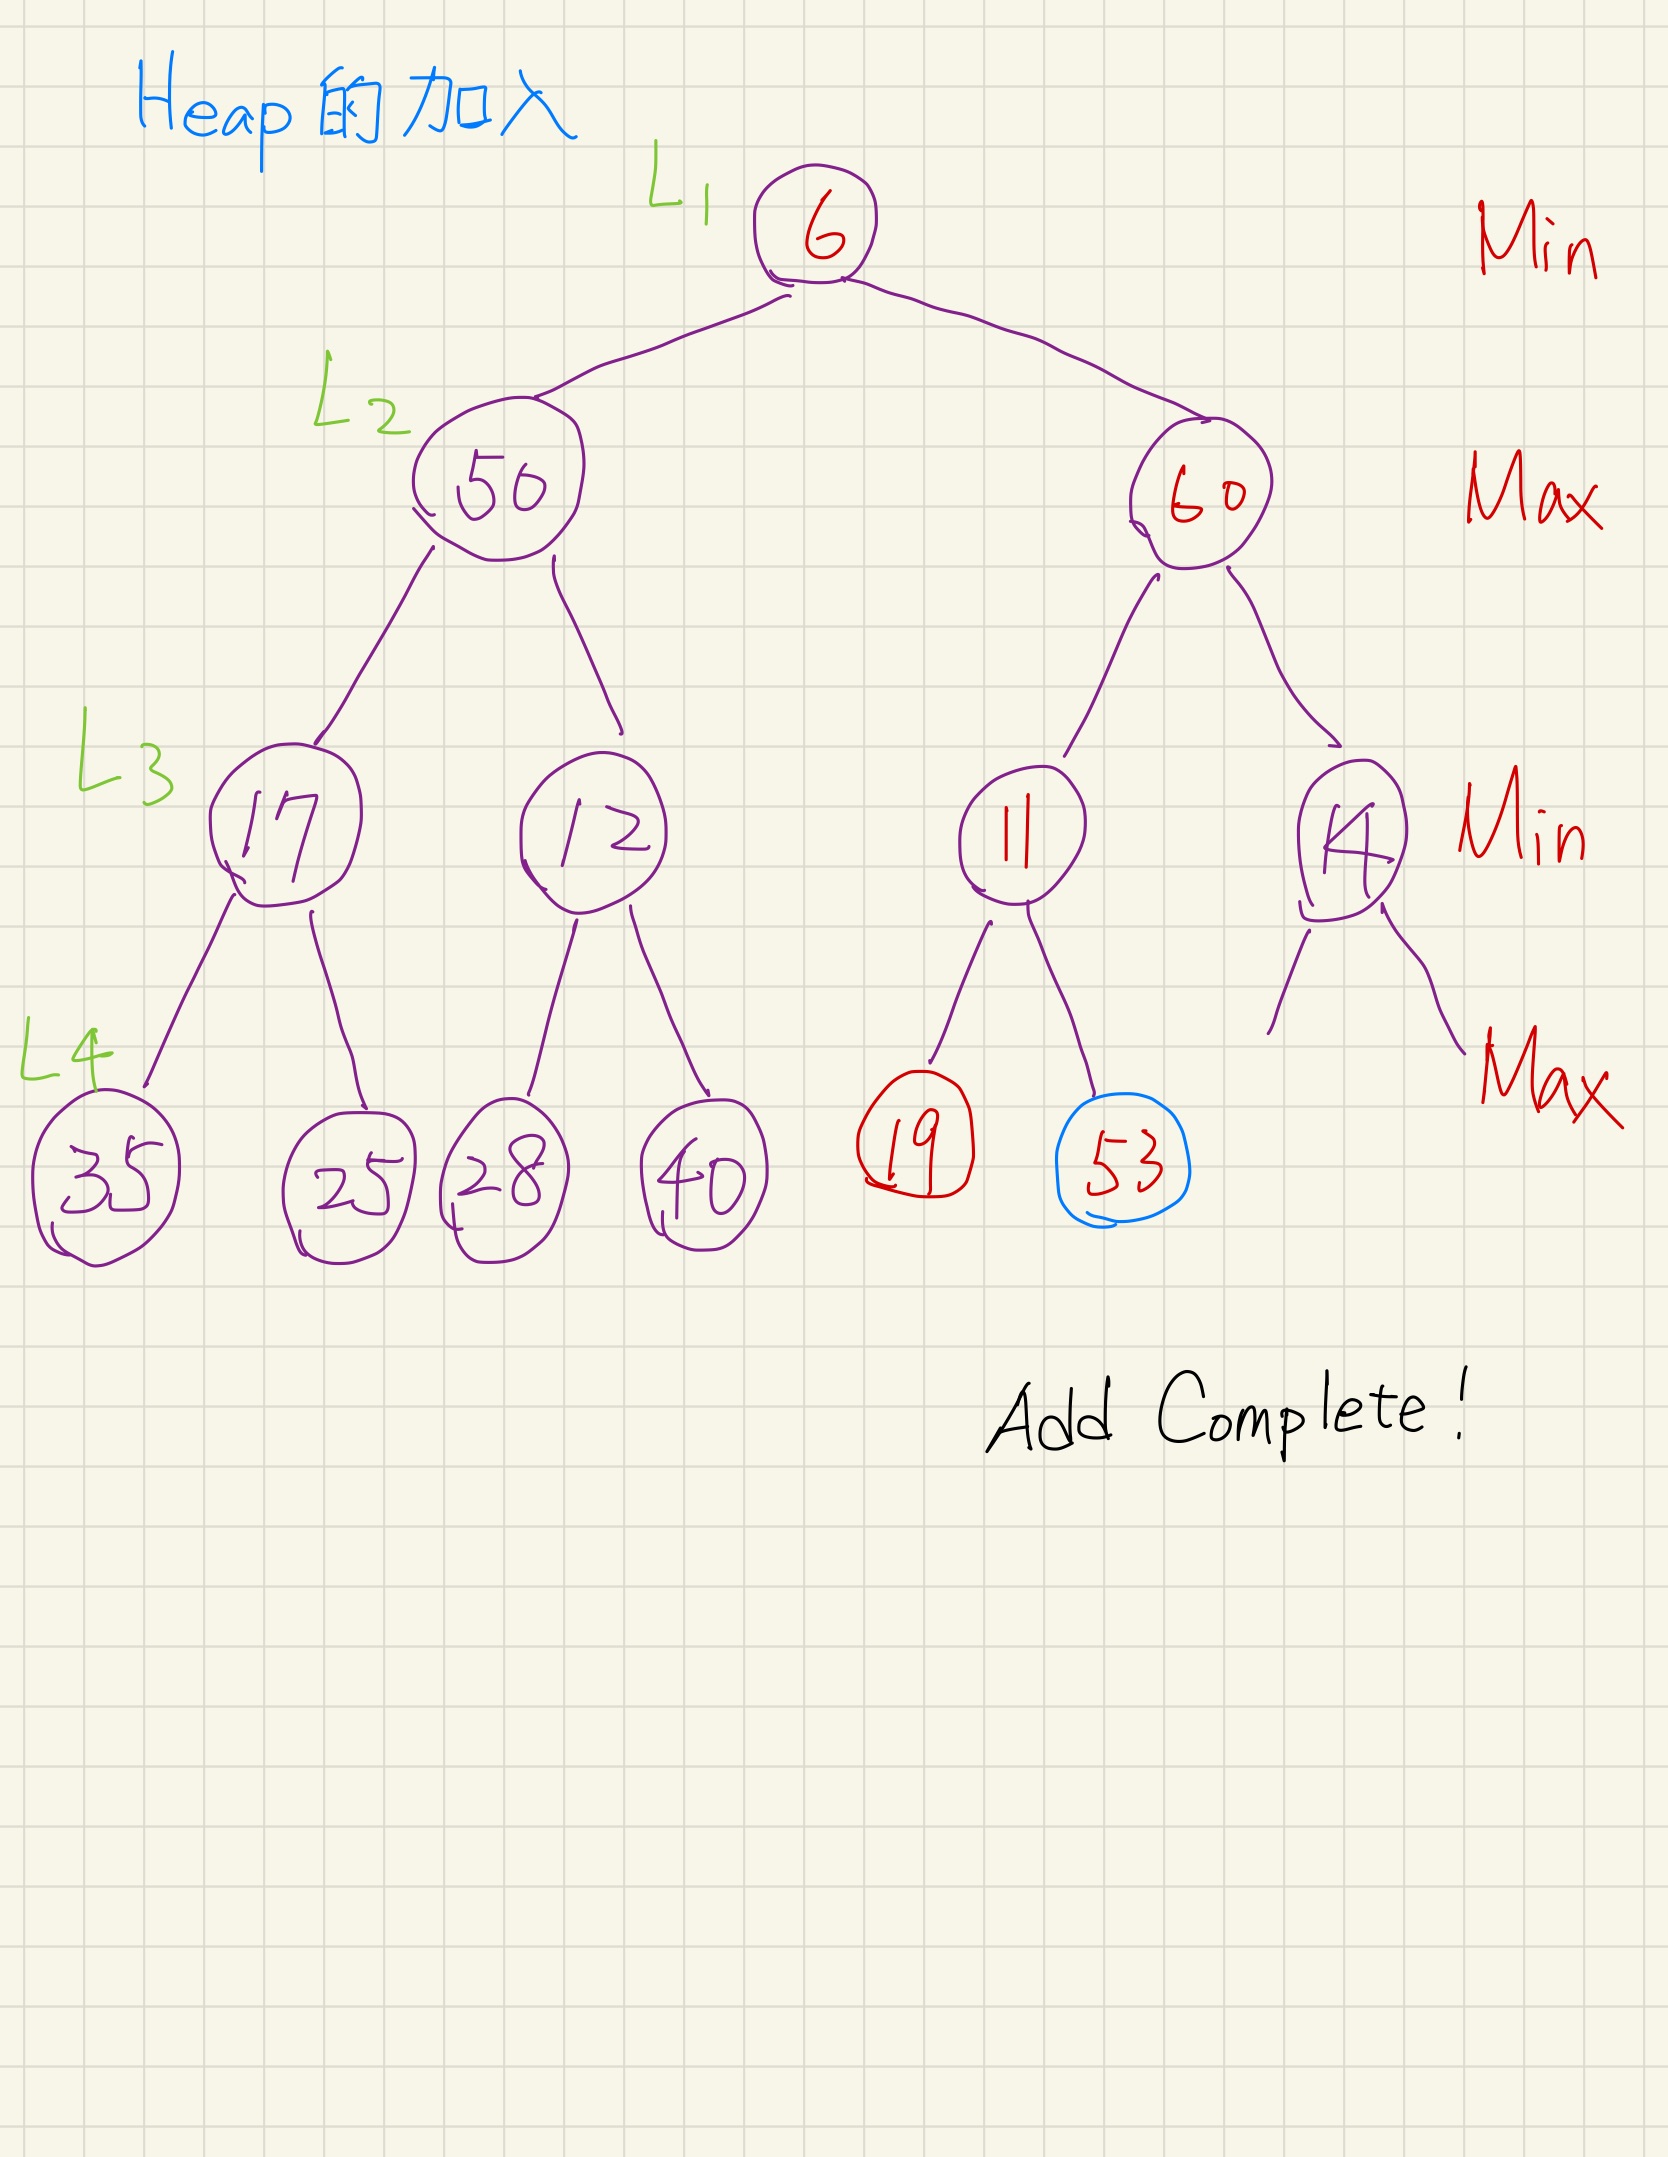 Heap的加入
L1
6
Min
L2
50
60
Max
L3
17
12
11
14
Min
L4
35
25
28
40
19
53
Max
Add Complete!